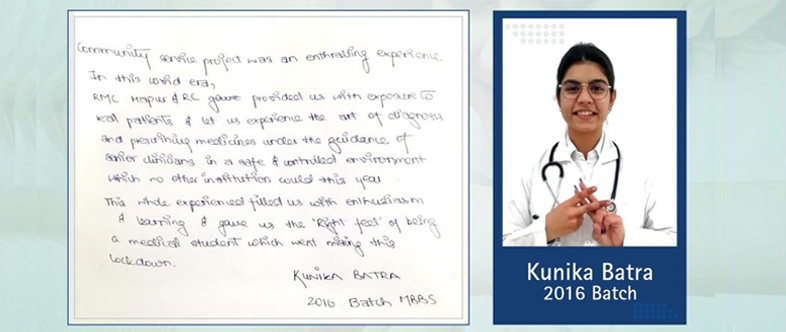 Community service project was an enthralling experience
In this covid era,
RMC Hapur & RC gave provided us with exposure to
real patients & let us experience the art of diagnosis
and prescribing medicines under the guidance of
senior clinicians in a safe & controlled environment
which no other institution could this year.
This whole experienced filled us with enthusiasm
& learning & gave us the 'Right feel' of being
a medical student which went missing this
lockdown.
KUNIKA BATRA
2016 Batch MBBS
Kunika Batra
2016 Batch